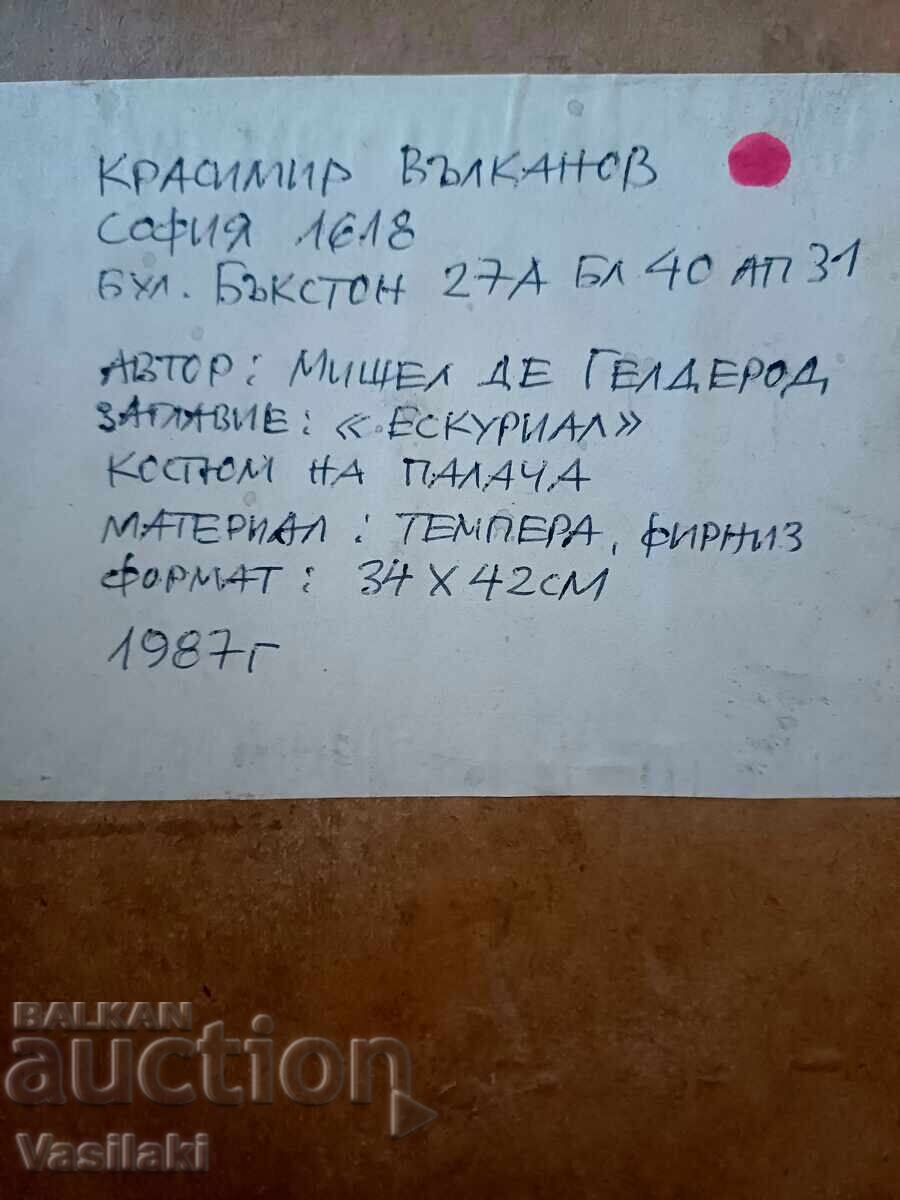 КРАСИМИР ВЪЛКАНОВ
СОФИЯ 1618
БУЛ. БЪКСТОН 27А БЛ 40 АП 31
АВТОР: МИШЕЛ ДЕ ГЕЛДЕРОД
ЗАГЛАВИЕ: «ЕСКУРИАЛ»
КОСТЮМ НА ПАЛАЧА
МАТЕРИАЛ: ТЕМПЕРА, ФИРНИЗ
ФОРМАТ: 34 Х 42 СМ
1987 г
BALKAN
auction
Vasilaki